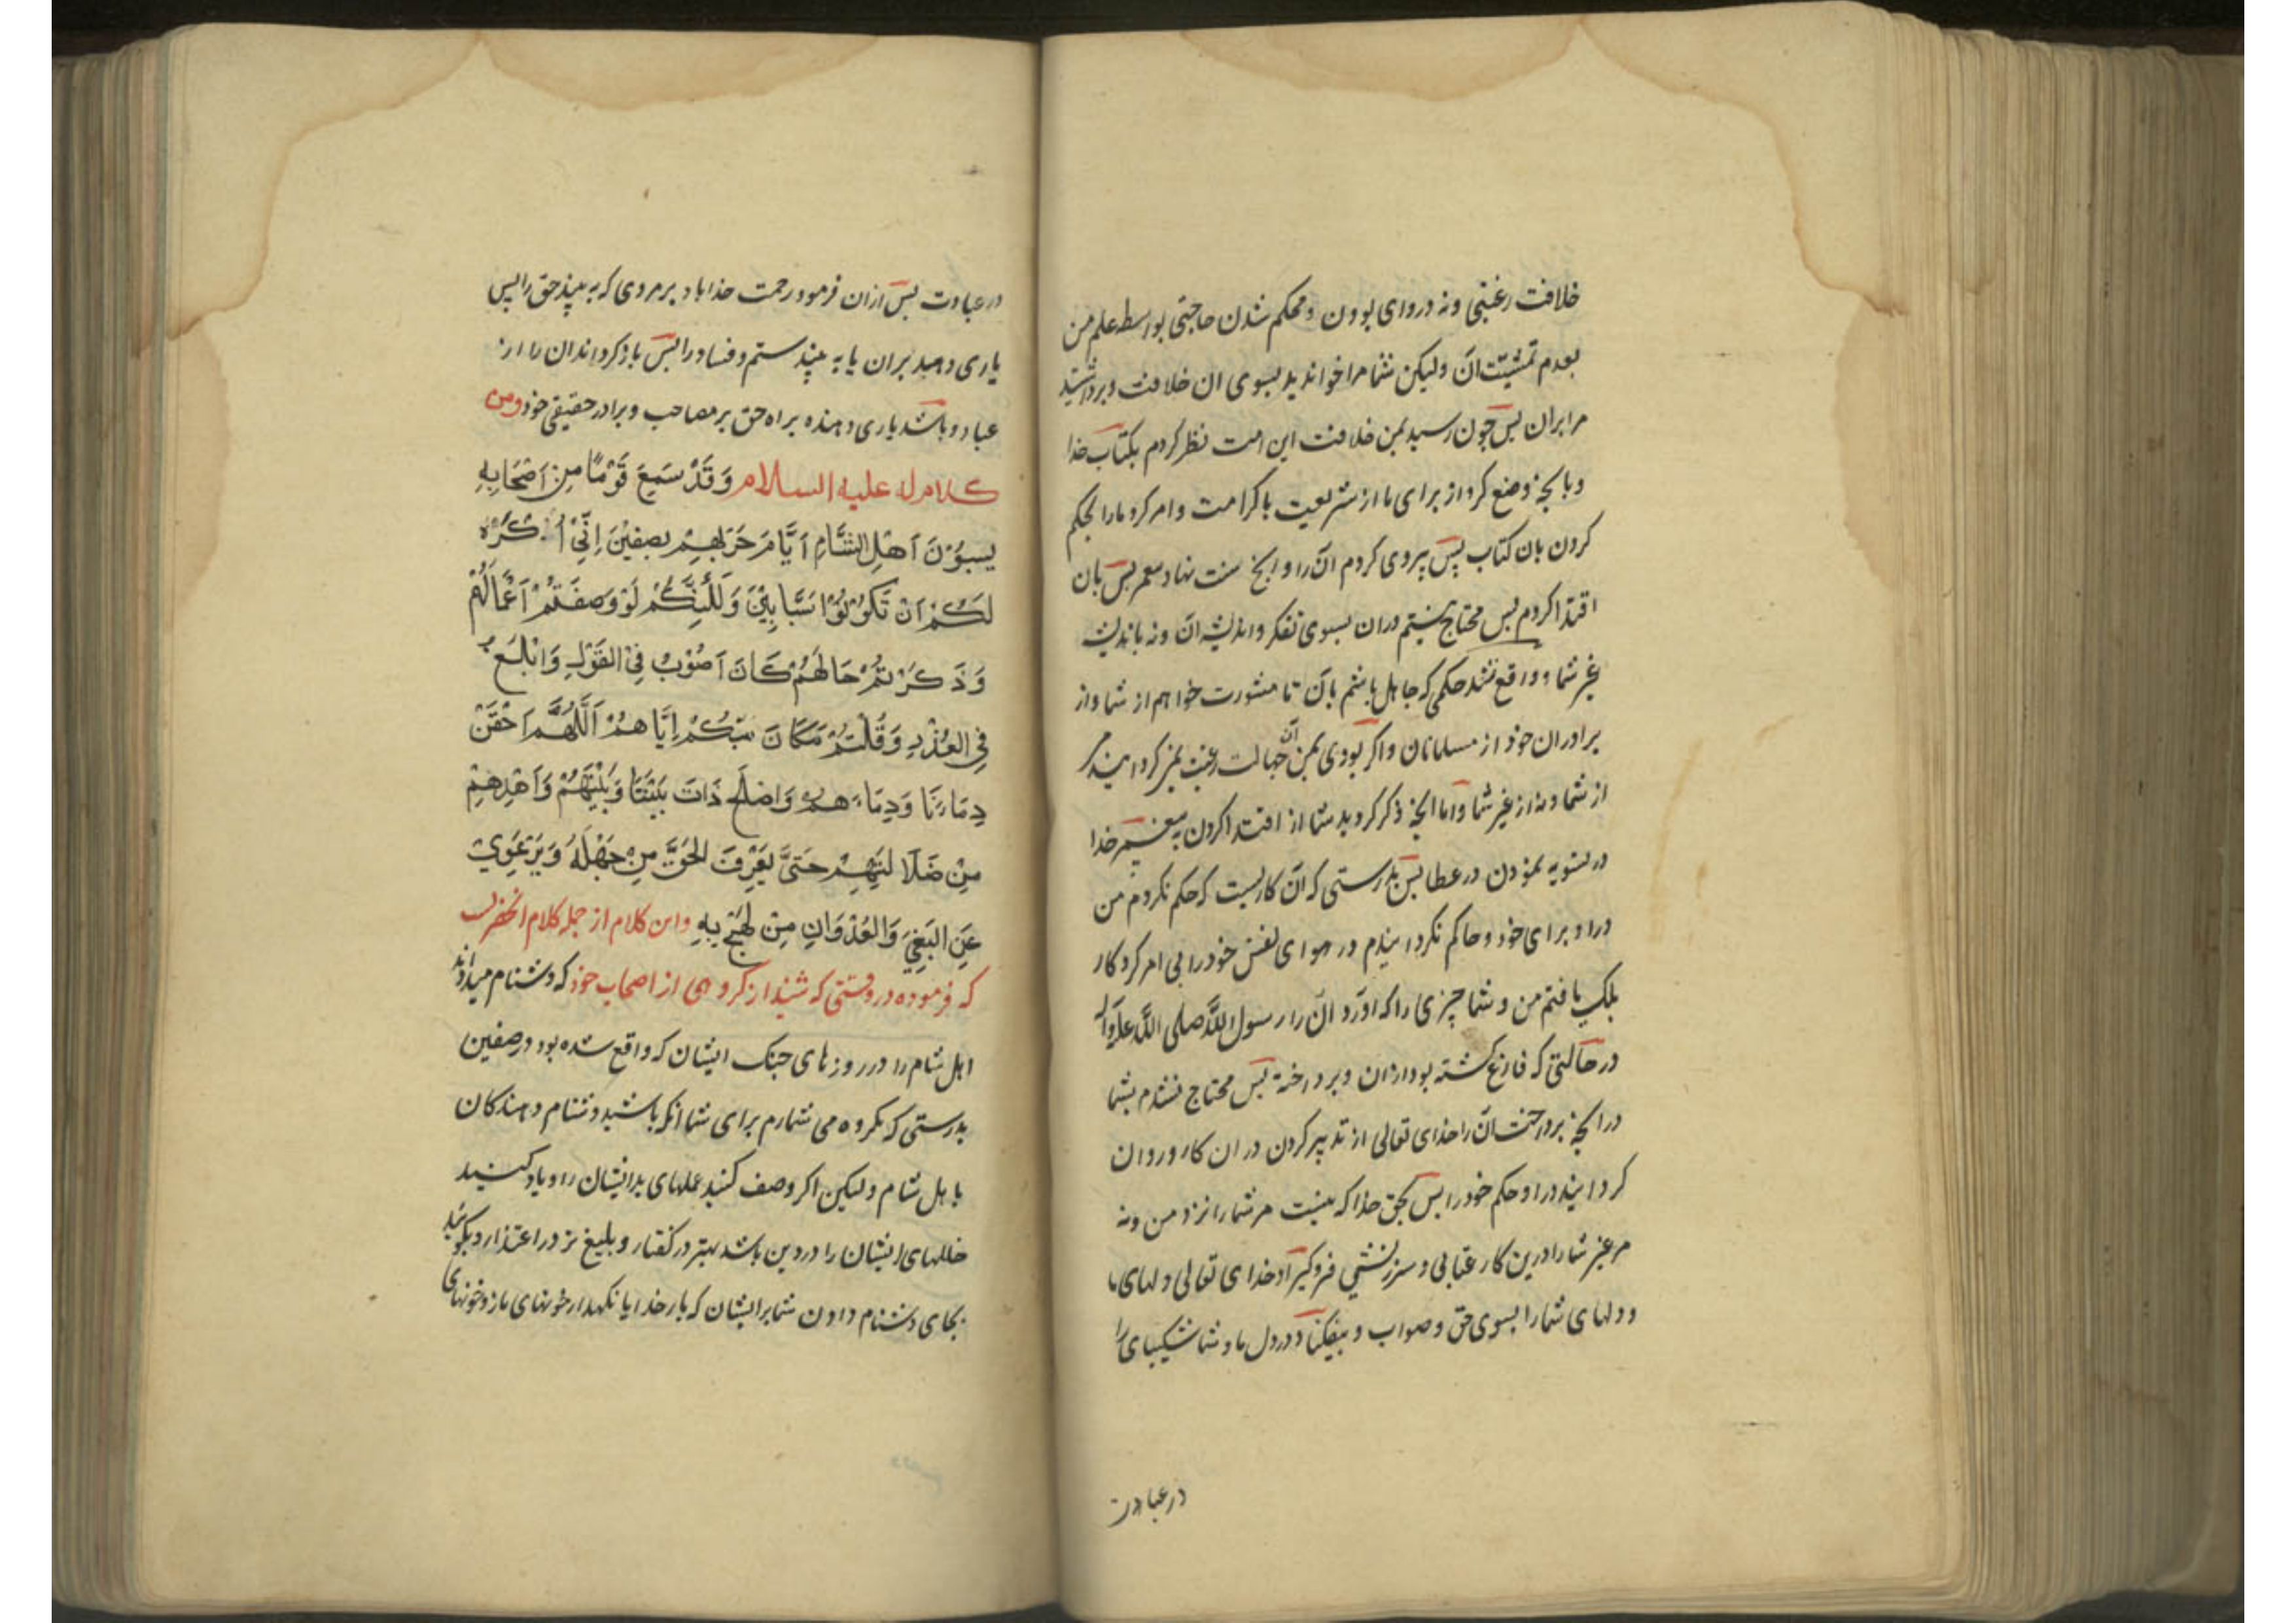 خلافت رغبتی و نه در روای بودن و محکم شدن حاجتی بواسطه علم من
بعدم تمشیت آن ولیکن شما مرا خواندید بسوی ان خلافت و برداشتید
مرا بران پس چون رسید بمن خلافت این امت نظر کردم بکتاب خدا
و بانچه وضع کرد از برای ما از شریعت باکرامت و امر کرد ما را بحکم
کردن بان کتاب پس پیروی کردم آن را و انچه سنت نهاد پس بان
اقتدا کردم پس محتاج نیستم دران بسوی تفکر و اندیشه آن و نه باندیشه
غیر شما و واقع نشد حکمی که جاهل باشم بآن تا مشورت خواهم از شما و از
برادران خود از مسلمانان و اکر بودی بمن آن جهالت رغبت
از شما و نه از غیر شما و اما انچه ذکر کردید شما از اقتدا کردن به پیغمبر خدا
در تسویه نمودن در عطا پس بدرستی که آن کاریست که حکم نکردم من
دراو برای خود و حاکم نکردانیدم در هوای نفس خود را بی امر کردکار
بلکه یافتم من و شما چیزی را که اورد آن را رسول الله صلی الله علیه وآله
در حالتی که فارغ کشته بود ازان و پرداخته پس محتاج نشدم بشما
درانچه پرداخت آن را خدای تعالی از تدبیر کردن در ان کار و روان
کردانید دراو حکم خود را پس بحق خدا که نیست مر شما را نزد من و نه
مر غیر شما را درین کار عتابی و سرزنشی فروکیراد خدای تعالی دلهای ما
و دلهای شما را بسوی حق و صواب و بیفکناد در دل ما و شما شکیبای را
در عبادت
در عبادت پس ازان فرمود رحمت خدا باد بر مردی که به بیند حق را پس
یاری دهد بران یا به بیند ستم و فساد را پس باز کرداند ان را از
عباد و باشد یاری دهنده براه حق بر مصاحب و برادر حقیقی خود ومن
كلام له عليه السلام وَقَدْ سَمِعَ قَوْمًا مِنْ اَصْحَابِهِ
يَسبُّوْنَ اَهْلِ الشَّامِ اَيَّامَ حَرْبِهِمْ بِصِفِّيْنَ اِنِّيْ اُكْرَهُ
لَكُمْ اَنْ تَكُوْنُوْا سَبَّابِيْنَ وَلَكِنَّكُمْ لَوْ وَصَفْتُمْ اَعْمَالَهُمْ
وَذَكَرْتُمْ حَالَهُمْ كَانَ اَصْوَبُ فِيْ القَوْلِ وَابْلَغَ
فِي العُذْرِ وَقُلْتُمْ مَكَانَ سَبِّكُمْ اِيَّاهُمْ اَللَّهُمَّ احْقَنْ
دِمَاءَنَا وَدِمَاءَهُمْ وَاصْلِحْ ذَاتَ بَيْنَنَا وَبَيْنَهُمْ وَاهْدِهِمْ
مِنْ ضَلَالَتِهِمْ حَتَّى يَعْرِفَ الحَقَّ مِنْ جَهِلَهُ وَيَرْعَوِيْ
عَنِ البَغْيِ وَالعُدْوَانِ مِنْ لَهِجَ بِهِ واین کلام از جمله کلام انحضرتست
که فرموده در وقتی که شنید از کروهی از اصحاب خود که دشنام میدادند
اهل شام را در روزهای جنک ایشان که واقع شده بود در صفین
بدرستی که مکروه می شمارم برای شما انکه باشید دشنام دهندکان
باهل شام ولیکن اکر وصف کنید عملهای بد ایشان را و یاد کنید
خللهای ایشان را در دین باشد بهتر در کفتار و بلیغ تر در اعتذار و بکوئید
بجای دشنام دادن شما بر ایشان که بار خدایا نکهدار خونهای ما را و خونهای